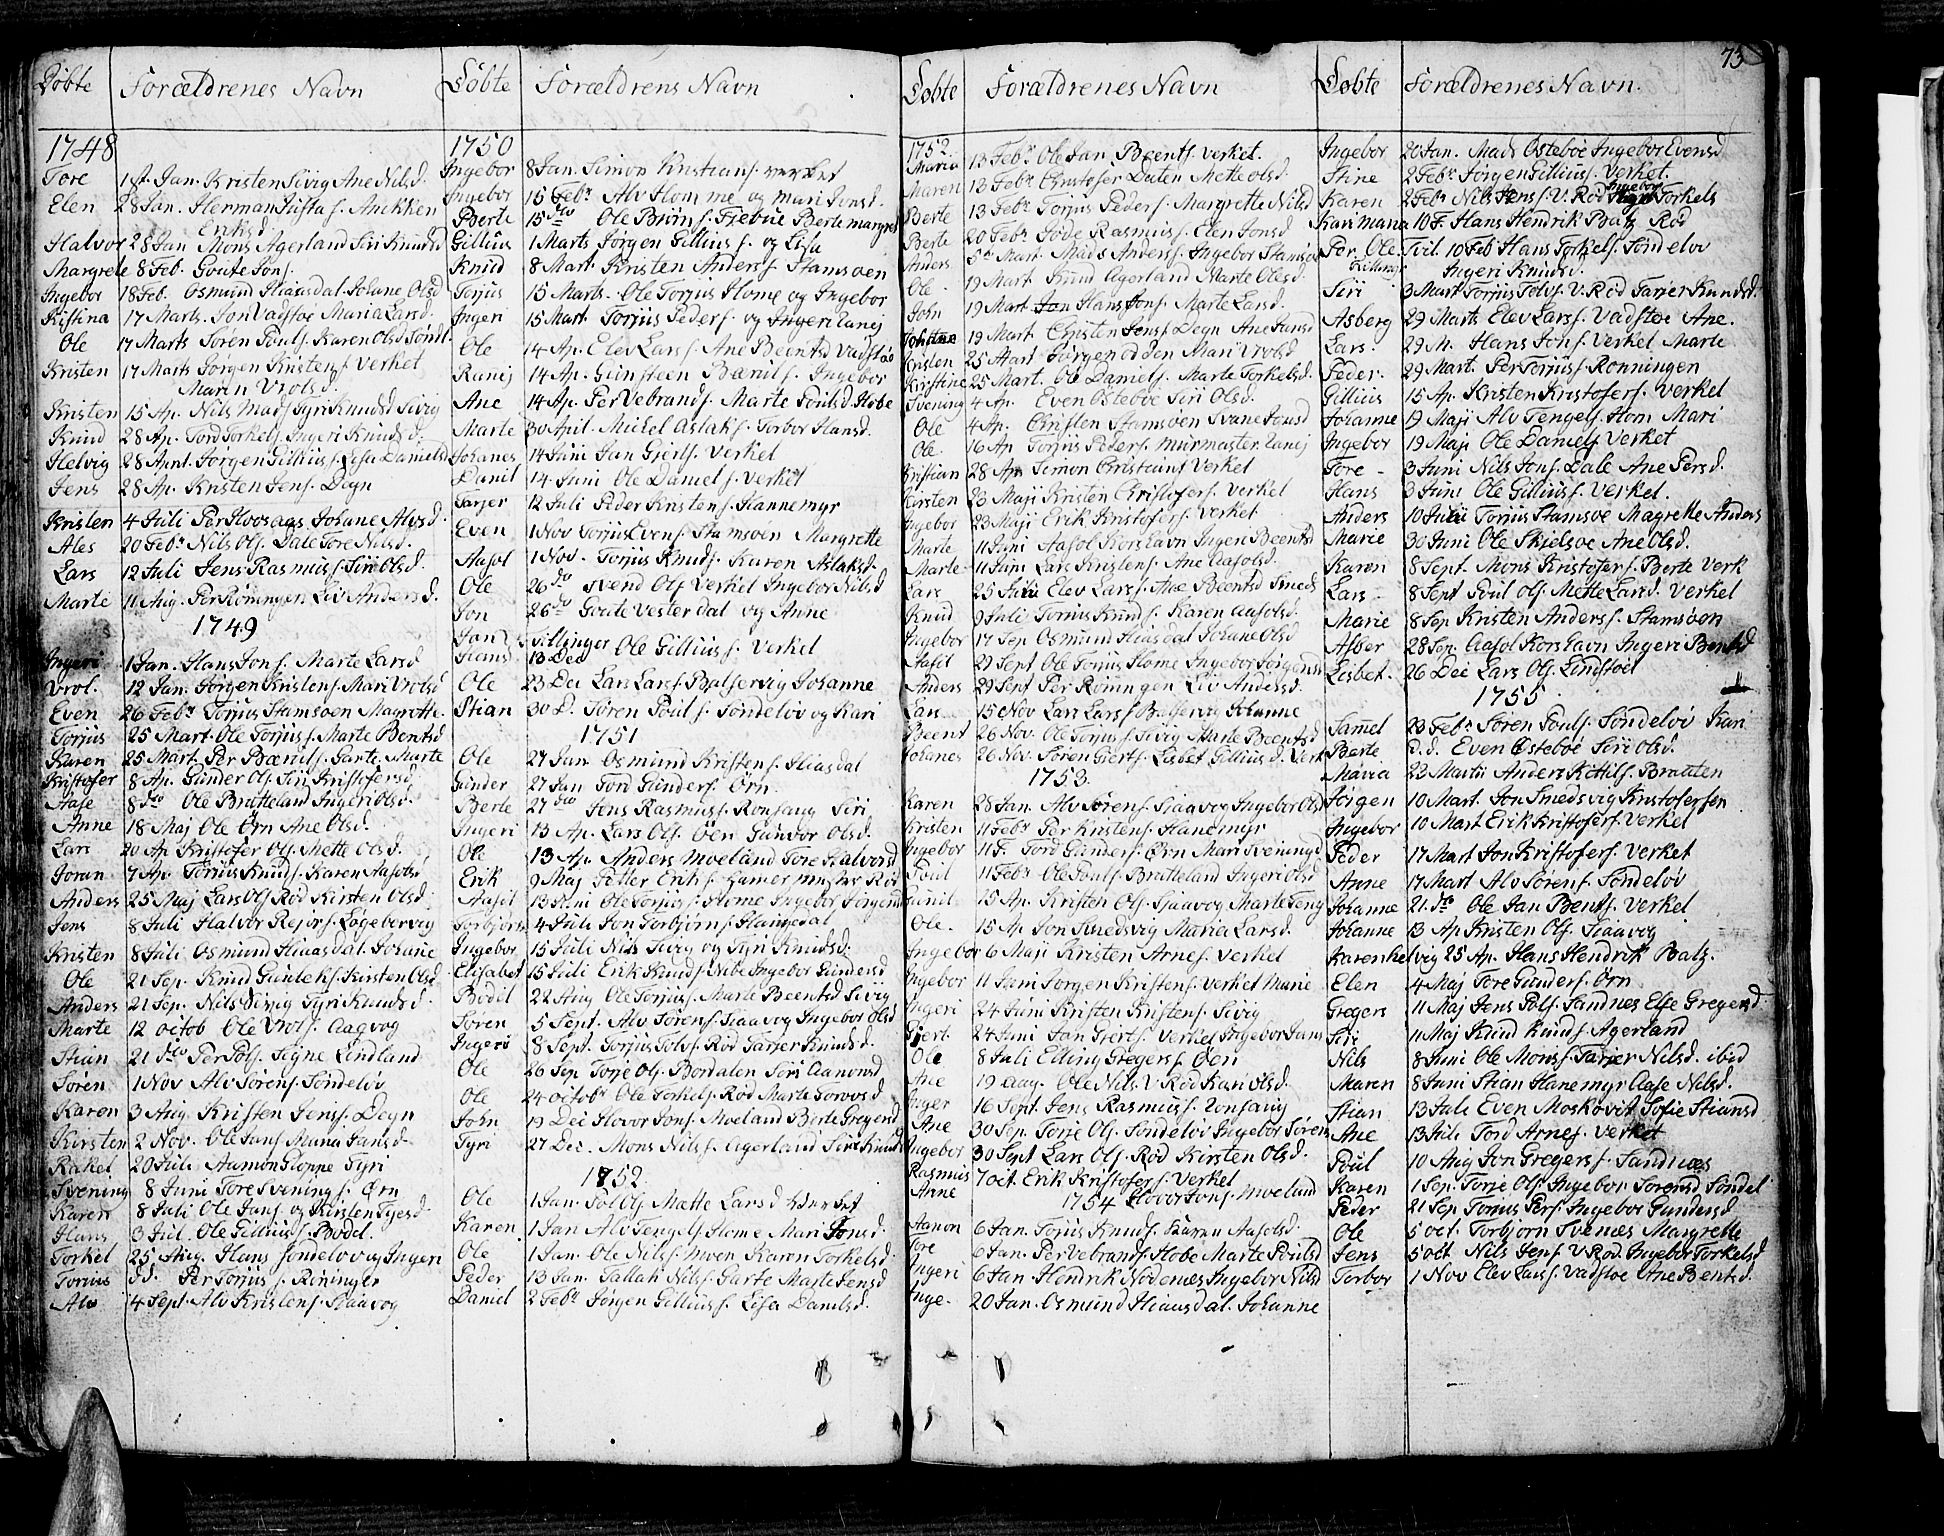 73
Döbte Forældrenes Navn
1748
Tore 1st. Jan. Kristen Sivig Ane Nilsd.
Elen 28 Jan. Herman Justas. Anekken
Eriksd
Halvor 28 Jan Mons Agerland Siri Knudsd
Margrete 8 Feb. Goute Jons.
Ingebor 18 Feb. Osmund Hiaasdal Johane Olsd
Kistina 17 Marts. Jon Vadstoe Maria Larsd.
Ole 17 Marts Sören Pouls. Karen Olsd Sönd.
Kristen 17 Marts Jörgen Kristens Verket
Maren Vrolsd.
Kristen 15 Ap. Nils Mads Tyri Knudsd Sivig
Knud 28 Ap. Tord Torkels. Ingeri Knudsd.
Helvig 28 April. Jörgen Gillius s. Lisa Danielsd
Jens 28 Ap. Kristen Jens. Degn
Kristen 4 Juli Per Hovsaas Johane Alvsd.
Ales 20 Febr. Nils Ols. Dale Tore Nilsd.
Lars 12 Juli Jens Rasmus s. Siri Olsd.
Marte 11 Aug. Per Röningen Liv Andersd.
1749
Ingeri 1 Jan. Hans Jons. Marte Larsd
Vrol. 12 Jan. Jörgen Kristens. Mari Vrolsd
Even 26 Febr. Torjus Stamsoen Magrette.
Torjus 25 Mart. Ole Torjus s. Marte Bentsd
Karen 25 Mart. Per Bærnils. Garte. Marte
Kristofer 8 Ap. Gunder Ols. Siri Kristofersd
Aase 8 dto Ole Bratteland Ingeri Olsd.
Anne 18 Maj Ole Örn Ane Olsd.
Lars 20 Ap Kristofer Ols. Mette Olsd.
Joran 7 Ap. Torjus Knuds. Karen Aasolsd
Anders 25 Maj Lars Ols Röd Kirsten Olsd.
Jens 8 Juli Halvor Rejers. Lögebervig
Kristen 8 Juli Osmund Hiaasdal Johane
Ole 21 Sep. Knud Gunleks. Kirsten Olsd
Anders 21 Sep. Nils Sivig Tyri Knudsd.
Marte 12 octob Ole Vrols. Aagvog
Stian 21 dto Per Pols. Signe Lindland
Sören 1 Nov Alv Sörens. Söndelöv
Karen 3 Aug. Kristen Jens s. Degn
Kirsten 2 Nov. Ole Jans Maria Jansd
Rakel 20 Juli Aamon Gloppe Tyri
Svening 8 Juni Tore Svenings. Örn
Karen 8 Juli Ole Jans. og Kirsten
Hans 3 Jul. Ole Gillius s. Bodel.
Torkel 25 Aug. Hans Söndelov og Ingeri
Torjus dd. Per Torjus s. Röninger
Alv 4 Sept. Alv Kristens. Siaavog
Döbte Forældrens Navn
1750
Ingebor 8 Jan. Simon Kristians. verket
Ingebor 15 Febr. Alv Homme og Mari Jonsd.
Berte 15 dto Ole Bruns. Fiebue Berte margret
Gillius 1 Marts Jörgen Gillius s. og Lisa
Knud 8 Mart. Kristen Anders s. Stamsoen
Torjus 15 Marts. Ole Torjus Home og Ingebor
Ingeri 15 Mart. Torjus Peders. og Ingeri Lanej
Ole 14 Ap. Elev Lars s. Ane Beentsd Vadstöe
Ranej 14 Ap. Gunsteen Bærnils. Ingebor
Ane 14 Ap. Per Vebrands. Marte Poulsd Hobe
Marte 30 April. Mickel Aslaks. Torbor Hansd.
Johanes 14 Juni Jan Gierts. Verket
Daniel 14 Juni Ole Daniels. Verket
Tarjer 12 Juli Peder Kristens. Hannemyr
Even 1 Nov Torjus Evens. Stamsoen Margrette
Aasol 1 Nov. Torjus Knuds. Karen Aslaksd.
Ole 26 do Svend Ols Verket Ingebor Nilsd
Jon 26 do Goute Vesterdal og Anne
Jan Hans Tvillinger Ole Gillius s. Verket
13 Dec
Ole 23 Dec Lars Lars s. Balservig Johanne
Stian 30 D. Sören Pouls. Söndelöv og Kari
1751
Ole 27 Jan Osmund Kristens. Hiasdal
Gunder 27 Jan Tord Gunders. Örn.
Berte 27 dto Jens Rasmus s. Ronsaag Siri
Ingeri 13 Ap. Lars Ols. Öen Gunvor Olsd.
Ole 13 Ap. Anders Moeland Tore Halvorsd
Erik 9 Maj Petter Eriks. Hamermester Röd
Aasel 13 Juni Ole Torjus s. Home Ingebor Jörgensd
Torbjörn 4 Juli Jon Torbjörns. Hangedal
Ingebor 15 Juli Nils Sivig og Tyri Knudsd.
Elisabet 15 Juli Erik Knuds. Nibe Ingebor Gundersd
Bodil 22 Aug Ole Torjus s. Marte Beentsd Sivig
Soren 5 Sept. Alv Sörens. Siaavog Ingebor Olsd
Ingerö 8 Sept. Torjus Tolvs. Röd Tarjer Knudsd.
Ole 26 Sep Torje Ols. Bordalen Siri Aanonsd
Ole 24 octobr. Ole Torkels. Röd Marte
John 19 Dec Hovor Jons. Moeland Berte Gregersd
Tyri 27 Dec. Mons Nils s. Agerland Siri Knudsd
1752
Ole 1 Jan. Pol Ols. Mette Larsd Værket
Karen 1 Jan Alv Tengels. Home Mari Jonsd.
Ole 1 Jan. Ole Nils s. Moen Karen Torkelsd
Peder 13 Jan. Tallak Nils s. Garte Marte Jensd
Daniel 2 Febr. Jörgen Gillius s. Lisa Danilsd.
Döbte Forældrenes Navn
1752
Maria 13 Febr. Ole Jan Beents. Verket.
Maren 13 Febr. Christofer Daten Mette Olsd.
Berte 13 Febr. Torjus Peders. Margrette Nilsd
Berte 20 Febr. Jode Rasmus s. Elen Jonsd
Anders 5te Mart. Mads Anders s. Ingebor Stamsöe
Ole 19 Mart Knud Agerland Marte Olesd.
John 19 Mart Jon Hans Jons. Marte Larsd.
Johane 19 Mart Christen Jens s. Degn Ane Jansd
Kristen 25 Mart Jörgen Odden Mari Vrolsd
Kirstine 25 Mart. Ole Daniels. Marte Torkelsd.
Svening 4 Ap. Even Östeböe Siri Olsd.
Ole 4 Ap. Christen Stamsöen Svane Jonsd
Ole. 16 Ap Torjus Peders. Murmaster Lanej
Kristian 28 Ap Simon Christians Verket
Kirsten 23 Maji Kristen Christofers. Verket
Ingebor 23 Maji Erik Kristofers. Verket
Marte 11 Juni Aasol Kors Havn Ingeri Beentsd
Marte 11 Juni Lars Kristens. Ane Aasolsd.
Lars 25 Juni Elev Lars s. Ane Beentsd Smeds
Knud 9 Juli Torjus Knuds. Karen Aasolsd.
Ingebor 17 Sep Osmund Hiasdal Johane Olsd
Aasil 29 Sept Ole Torjus Home Ingebor Jörgensd
Anders 29 Sept Per Röningen Liv Andersd.
Lars 15 Nov Lars Lars s. Balservig Johanne
Beent 26 Nov. Ole Torjus s. Sivig Marte Beentsd
Johanes 26 Nov. Sören Gierts. Lisbet Gilliusd. Verk
1753
Karen 28 Jan. Alv Sörens. Siaavog Ingebor Olsd
Kristen 11 Febr. Per Kristens. Hanemyr
Ingebor 11 F. Tord Gunders. Örn Mari Sveningsd
Poul 11 Febr. Ole Pouls. Bratteland Ingeri Olsd
Gunil 15 Ap. Kristen Ols. Siaavog Marte Teng
Ole. 15 Ap. Jon Smedsvig Maria Larsd.
Ingebor 6 Maji Kristen Arnes. Verket
Ingebor 11 Juni Jörgen Kristens. Verket Marie
Ingeri 24 Juni Kristen Kristens. Sivig
Gjert 24 Juni Jan Gierts. Verket Ingebor Jans
Ole 8 Juli Elling Gregers s. Öen
Ane 19 Aug. Ole Nils. V Röd Kari Olsd.
Inger 16 Sept Jens Rasmus s. Ronsaag
Ane 30 Sep. Torje Ols. Söndelöv Ingebor Sörens
Ingebor 30 Sept Lars Ols. Röd Kirsten Olsd.
Rasmus 7 oct. Erik Kristofers. Verket
Anne 1754 Hovor Jons. Moeland
Aanon 6 Jan. Torjus Knuds. Karen Aasolsd.
Tore 6 Jan. Per Vebrands Hobe Marte Poulsd
Ingeri 6 Jan. Hendrik Nodenæs Ingebor Nilsd
Inge. 20 Jan. Osmund Hiausdal. Johanne
Döbte Forældrenes Navn.
Ingebor 20 Jan. Mads Osteböe Ingebor Evensd
Stine 2 Febr. Jörgen Gillius. Verket.
Karen 2 Febr. Nils Jens s. V. Röd Ingebor Torkels
Kari Maria 10 F. Hans Hendrik Balz Röd
Per, Ole Tvil. 10 Feb Hans Torkels. Söndelöv
Tvillinger Ingeri Knudsd.
Siri 3 Mart Torjus Tolvs. V. Röd Tarjer Knudsd.
Asberg 29 Marts Elev Lars s. Vadstoe Ane.
Lars. 29 M. Hans Jons. Verket Marte
Peder. 29 Mart. Per Torjus s. Ronningen
Gillius 15 Ap. Kristen Kristofers s. Verket
Johanne 19 Maji Alv Tengels. Hom Mari
Ingebor 19 Maji Ole Daniels Verket
Tore 3 Juni Nils Jons. Dale Ane Persd.
Hans 3 Juni Ole Gillius s. Verket.
Anders 10 Julii Torjus Stamsoe Magrette Anders
Marie 30 Juni Ole Skielsoe Ane Olsd.
Karen 8 Sept. Mons Kristofers. Berte Verk
Lars 8 Sept Poul Ols. Mette Larsd. Verket
Marie 8 Sep Kristen Anders s. Stamsöen
Asber 28 Sep. Aasol Kors Havn Ingeri Bentsd
Lisbet. 26 Dec Lars Ols. Lindstöel
1755
Samel 23 Febr. Sören Pouls. Söndelöv Kari
Berte d.d. Even Osteböe Siri Olsd.
Maria 23 Martii Anders Kittils. Braaten
Jörgen 10 Mart. Jon Smedsvig Kristofersen
Ingebor 10 Mart Erik Kristofers. Verket
Peder 17 Mart Jon Kristofers. Verket
Anne 17 Mart Alv Sörens. Söndelöv
Johanne 21. dto Ole Jan Bents. Verket
Johanne 13 Ap Kristen Ols. Siaavog
Karen helvig 25 Ap. Hans Hendrik Balz.
Elen 4 Maj Tore Gunders. Örn
Gregers 11 Maj Jens Pols. Sandnes Else Gregersd
Siri 11 Maj Knud Knuds. Agerland
Nils 8 Juni Ole Mons s. Tarjer Nilsd. ibid
Maren 8 Juni Stian Hanemyr Aase Nilsd.
Stian 13 Juli Even Moskovit Sofie Stiansd
Ane 13 Juli Tord Arnes. Verket
Poul 10 Aug Jon Gregers s. Sandnæs
Karen 1 Sep. Torje Ols. Ingebor Sorensd Söndel
Peder 21 Sep Torjus Pers. Ingebor Gundersd
Ole 5 oct. Torbjorn Svenæs Margrette
Jens 5 oct. Nils Jens s. V Röd. Ingebor Torkelsd
Torbor 1 Nov Elev Lars s. Vadstoe Ane Bentsd.